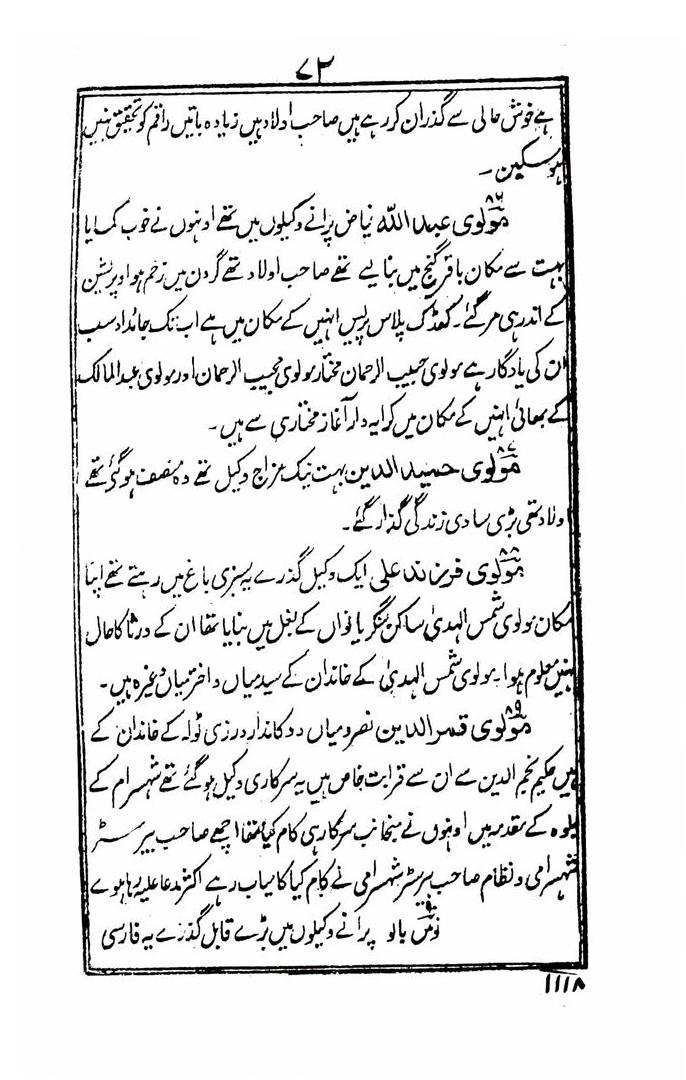 ۷۲
ہے خوش حالی سے گذران کر رہے ہیں صاحب اولاد ہیں زیادہ باتیں راقم کو تحقیق نہیں
ہو سکین۔
۸۶
مولوی عبد اللہ نیاض پرانے وکیلوں میں تھے اونہوں نے خوب کمایا
بہت سے مکان باقر گنج میں بنایے تھے صاحب اولاد تھے گردن میں زخم ہوا وپریشین
کے اندر ہی مر گئے۔ کھڈگ بلاس پریس انہیں کے مکان میں ہے اب تک جائداد سب
ان کی یادگار ہے مولوی حبیب الرحمان مختار مولوی مجیب الرحمان اور مولوی عبد المالک
کے بھائی انہیں کے مکان میں کرایہ دار آغاز مختاری سے ہیں۔
۸۷
مولوی حمید الدین بہت نیک مزاج وکیل تھے وہ منصف ہو گئے تھے
اولاد تھی بڑی سادی زندگی گذار گئے۔
۸۸
مولوی فرزند علی ایک وکیل گذرے یہ سبزی باغ میں رہتے تھے اپنا
مکان مولوی شمس الہدیٰ ساکن کے بغل میں بنایا تھا ان کے ورثا کا حال
نہیں معلوم ہوا۔ مولوی شمس الہدیٰ کے خاندان کے سید میاں و اختر میاں وغیرہ ہیں۔
۸۹
مولوی قمر الدین نصرو میاں دوکاندار درزی ٹولہ کے خاندان کے
ہیں حکیم نجم الدین سے ان سے قرابت خاص ہیں یہ سرکاری وکیل ہو گئے تھے شہسرام کے
بلوہ کے مقدمہ میں اونہوں نے منجانب سرکار ہی کام کیا تھا اچھے صاحب بیرسٹر
شہسرامی و نظام صاحب بیرسٹر شہسرامی نے کام کیا کامیاب رہے اکثر مدعا علیہ رہا ہوے
۹۰
بابو پرانے وکیلوں میں بڑے قابل گذرے یہ فارسی
۱۱۱۸